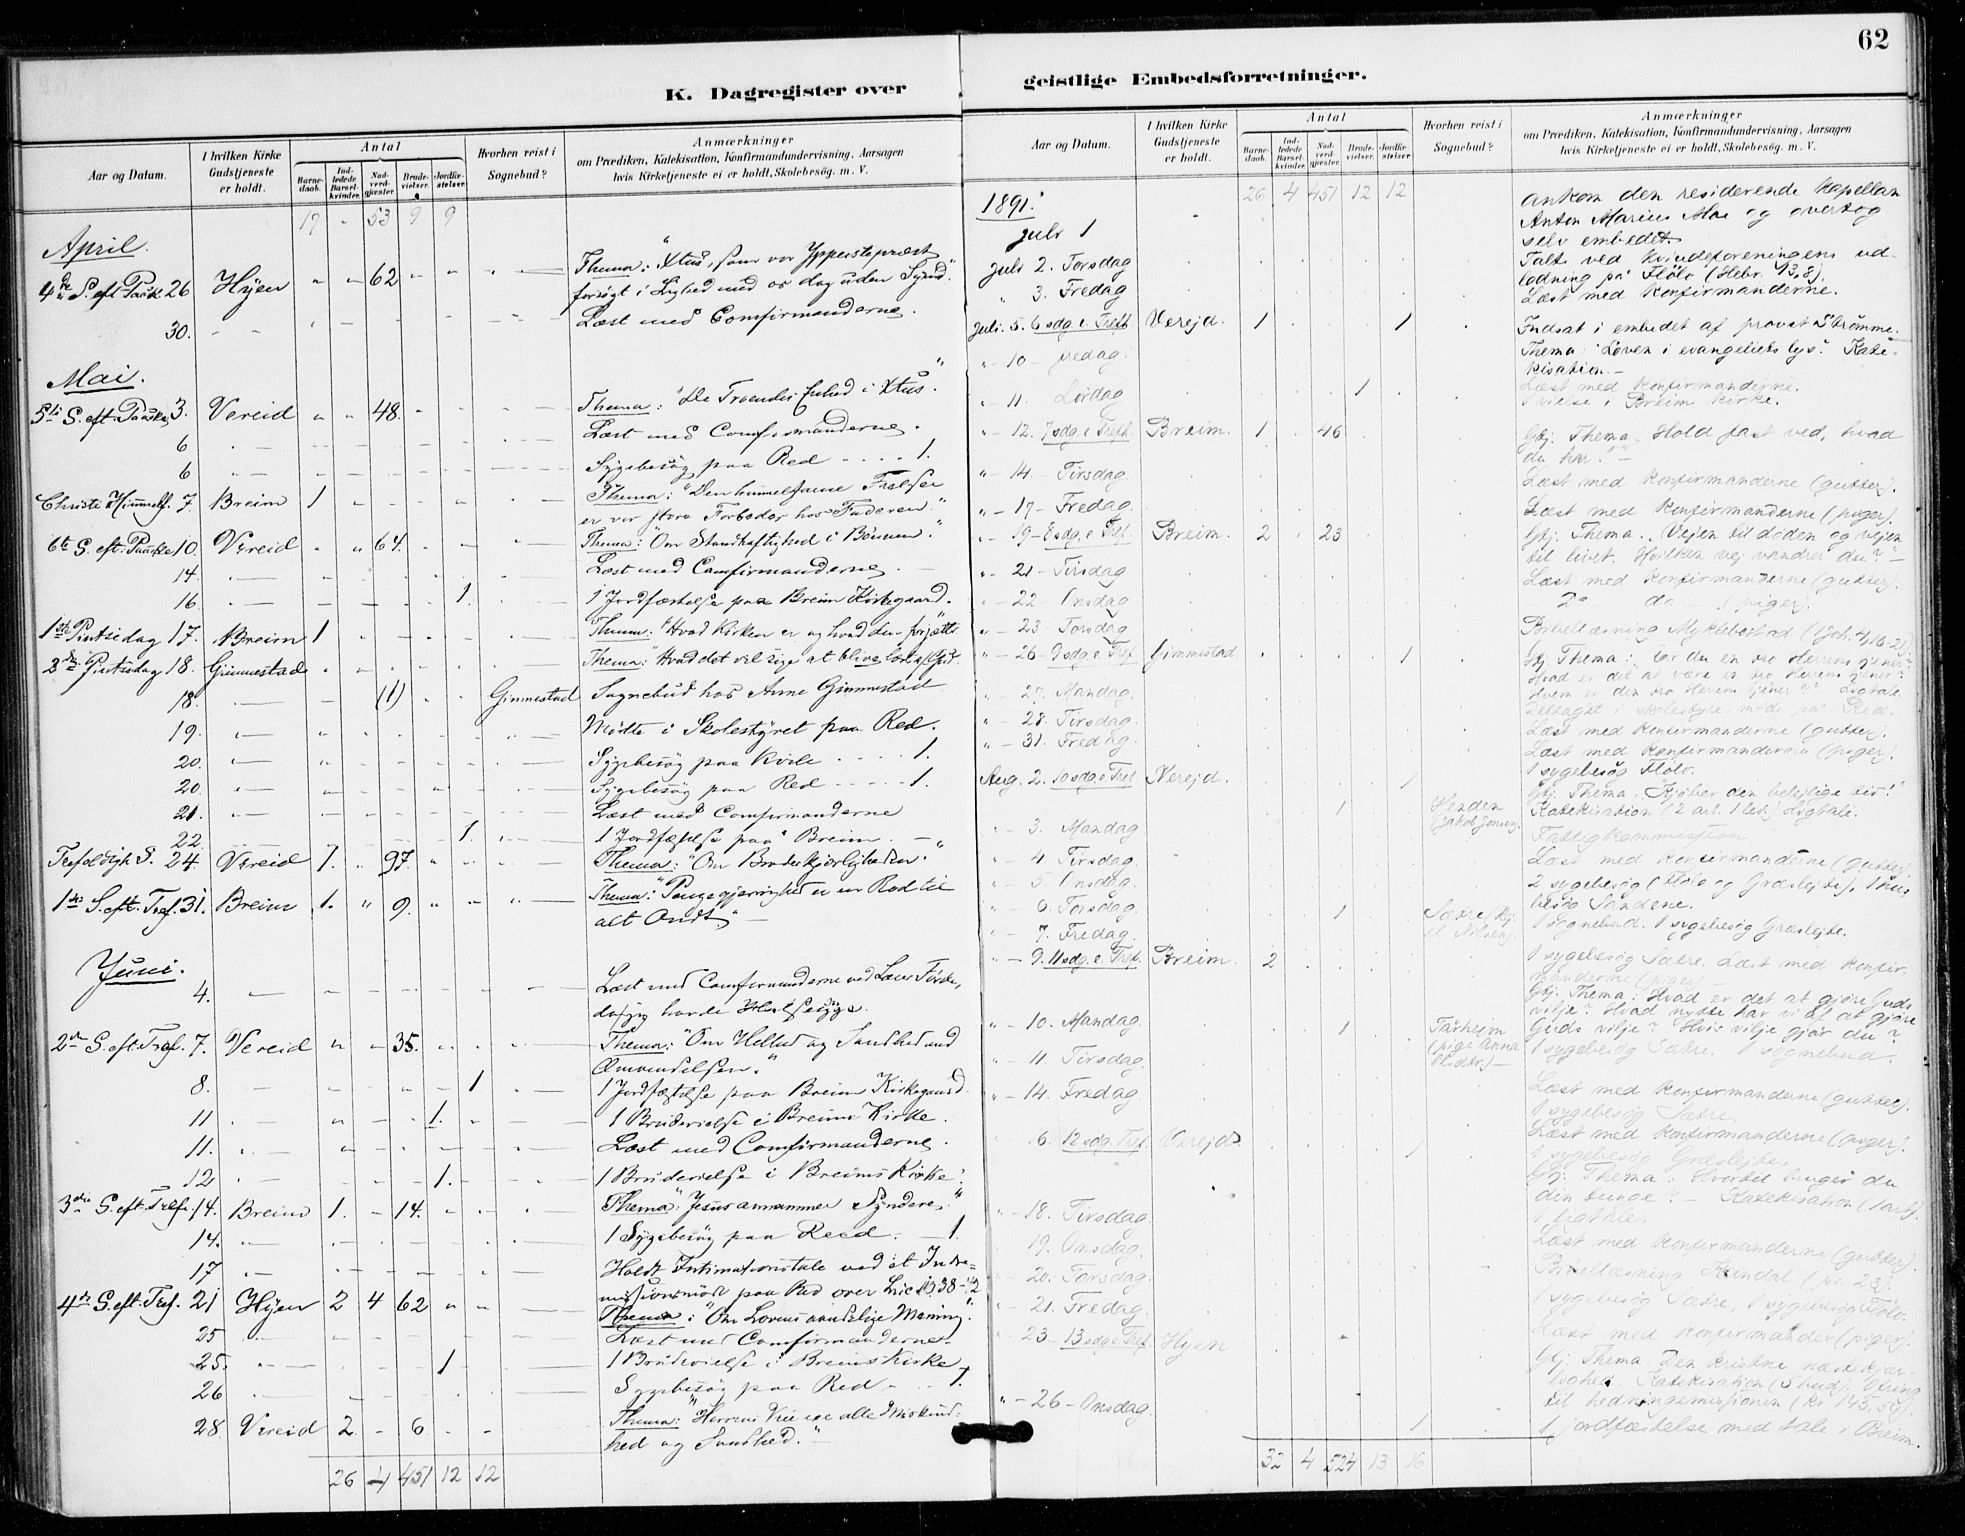 62
K. Dagregister over
geistlige Embedsforretninger.
Aar og Datum.
I hvilken Kirke Gudstjeneste er holdt.
Antal
Barnedaab.
Indledede Barselkvinder.
Nadverdgjester
Brudevielser.
Jordfæstelser
Hvorhen reist i Sognebud?
Anmærkninger
om Prædiken, Katekisation, Konfirmandundervisning, Aarsagen
hvis Kirketjeneste ei er holdt, Skolebesøg. m. V.
17 - 53 9 9
April.
4de S. eft. Paask 26 Hyen " " 62 Thema: "Xtus, som vor Ypperstepræst
forsøgt i Lighed med os dog uden Synd."
30. Læst med Comfirmanderne.
Mai.
5te S. eft. Paaske 3. Vereid " " 48. Thema: "De Troendes Enhed i Xtus."
6 Læst med Comfirmanderne.
6 Sygebesøg paa Red 1.
Christi Himmelf. 7. Breim 1 Thema: "Den himmelfarne Frelser
er vor store Forbeder hos Faderen."
6te S. eft. Paaske 10. Vereid " " 64. Thema: "Om Standhaftighed i Bønnen."
14. Læst med Comfirmanderne
16. 1. 1 Jordfæstelse paa Breim Kirkegaard.
1ste Pintsedag 17. Breim 1 Thema: "Hvad Kirken er og hvad den
2den Pintsedag 18. Gimmestad Thema: "Hvad det vil sige at blive lært af Gud.
18. (1) Gimmestad Sognebud hos Anne Gimmestad
19. Mødte i Skolestyret paa Red.
20. Sygebesøg paa Kvile 1.
20. Sygebesøg paa Red 1.
21. Læst med Comfirmanderne
22. 1. 1 Jordfæstelse paa Breim
Trefoldigh. S. 24. Vereid 1. " 97. Thema: "Om Broderkjærligheden."
1ste S. eft. Tref. 31. Breim 1. " 9. Thema: "Pengegjerrighed er en Rod til
alt Ondt"
Juni.
4. Læst med Comfirmanderne ved Lærer Førde,
da jeg havde Halssyge.
2den S. eft. Tref. 7. Vereid " " 35. Thema: "Om Helled og Sandhed
Omvendelsen."
8. 1 1 Jordfæstelse paa Breim Kirkegaard
11 1. 1 Brudevielse i Breims Kirke.
11. Læst med Comfirmanderne.
12 1. 1 Brudevielse i Breims Kirke.
3die S. eft. Tref. 14. Breim 1. - 14. Thema: "Jesus annammer Syndere"
14. 1 Sygebesøg paa Reed. 1.
17 Holdt Intimationstale ved et Indre-
missionsmøde paa Red over Luc 10.38-42
4de S. eft. Tref. 21 Hyen 2 4 62 Thema: "Om Lovens aandelige Mening".
25 Læst med Comfirmanderne
25. 1 1 Brudevielse i Breims Kirke
26 Sygebesøg paa Red 1.
28 Vereid 2 - 6 Thema: "Herrens Veie ere alle Miskund-
hed og Sandhed."
26 4 451 12 12
Aar og Datum.
I hvilken Kirke Gudstjeneste er holdt.
Antal
Barnedaab.
Indledede Barselkvinder.
Nadverdgjester
Brudevielser.
Jordfæstelser
Hvorhen reist i Sognebud?
Anmærkninger
om Prædiken, Katekisation, Konfirmandundervisning, Aarsagen
hvis Kirketjeneste ei er holdt, Skolebesøg. m. V.
1891. 26 4 451 12 12
juli 1 ankom den residerende kapellan
Anton Marius Moe og overtog
selv embedet.
juli 2. Torsdag Talt ved kvindeforeningens ud-
lodning på Flölo (Hebr. 13,8).
" 3. Fredag Læst med konfirmanderne.
juli. 5. 6 sdg. e. Treft. Verejd. 1 1 Indsat i embedet af provst Strömme.
Thema: "Loven i evangeliets lys". Kate-
kisation.-
" - 10 - fredag. Læst med konfirmanderne.
" - 11. Lördag 1 vielse i Breim kirke.
" - 12. 7 sdg. e. Treft. Breim. 1 46 Gbj. Thema: Hold fast ved, hvad
du har."
" - 14. Tirsdag Læst med konfirmanderne (gutter).
" - 17 - Fredag Læst med konfirmanderne (piger).
" - 19 - 8 sdg. e. Tref. Breim. 2 23 Gbj. Thema: Vejen til döden og vejen
til livet. Hvilken vej vandrer du?"
" - 21 - Tirsdag Læst med konfirmanderne (gutter).
" - 22 - Onsdag Do do (piger).
" - 23 - Torsdag Bibellæsning Myklebostad
" - 26 - 9 sdg. e. Tref. Gimmestad. 1 Gbj. Thema: Er du en tro Herrens tjener?
Hvad er det at være en tro Herrens tjener?
Hvem er den tro Herrens tjener?" Ligtale.
" - 27. Mandag. Deltaget i skolestyre-möde på Red.
" - 28. Tirsdag. Læst med konfirmanderne (gutter).
" - 31. Fredag. Læst med konfirmanderne (piger).
1 sygebesög Flölo.
Aug. 2. 10 sdg. e. Tref. Verejd. 1 Gbj. Thema: Kjöber den belejlige tid!"
Katekisation (2 art. 1 led.) Ligtale.
1 Henden (Jakob Jonsen).
" - 3. Mandag. Fattigkommission
" - 4 Tirsdag. Læst med konfirmanderne (gutter).
" - 5. Onsdag. 2 sygebesög (Flölo og Græslejte). 1 hus-
besög Sandene.
" - 6. Torsdag. 1 Sætre 1 sognebud. 1 sygebesög Græslejte.
" - 7. Fredag. 1 sygebesög Sætre. Læst med konfir-
manderne (piger)
" - 9. 11 sdg. e. Tref. Breim. 2 Gbj. Thema: Hvad er det at gjöre Guds
vilje? Hvad nytte har vi af at gjöre
Guds vilje? Hvis vilje gjör du?
" - 10. Mandag. 1 Tarheim (pige Anna 1 sygebesög Sætre. 1 sognebud.
" - 11. Tirsdag. Læst med konfirmanderne (gutter).
1 sygebesög Sætre.
" - 14. Fredag. Læst med konfirmanderne (piger).
1 sygebesög Græslejte.
" 16. 12 sdg. Tref. Verejd. 1 Gbj. Thema: Hvortil bruger du
din tunge? - Katekisation (1 art).
1 ligtale.
" - 18. Tirsdag. Læst med konfirmanderne (gutter).
" 19. Onsdag. Bibellæsning
" - 20. Torsdag. 1 sygebesög Sætre, 1 sygebesög Flölo.
" - 21. Fredag. Læst med konfirmander (piger).
" - 23 - 13 sdg. e. Tref. Hyen Gbj. Thema: Den kristne næstekjær-
lighed. Katekisation (5 bud). Ofring
til hedningemissionen (kr. 143.54).
" - 26 - Onsdag. 1 1 jordfæstelse med tale i Breim.
32 4 524 13 16